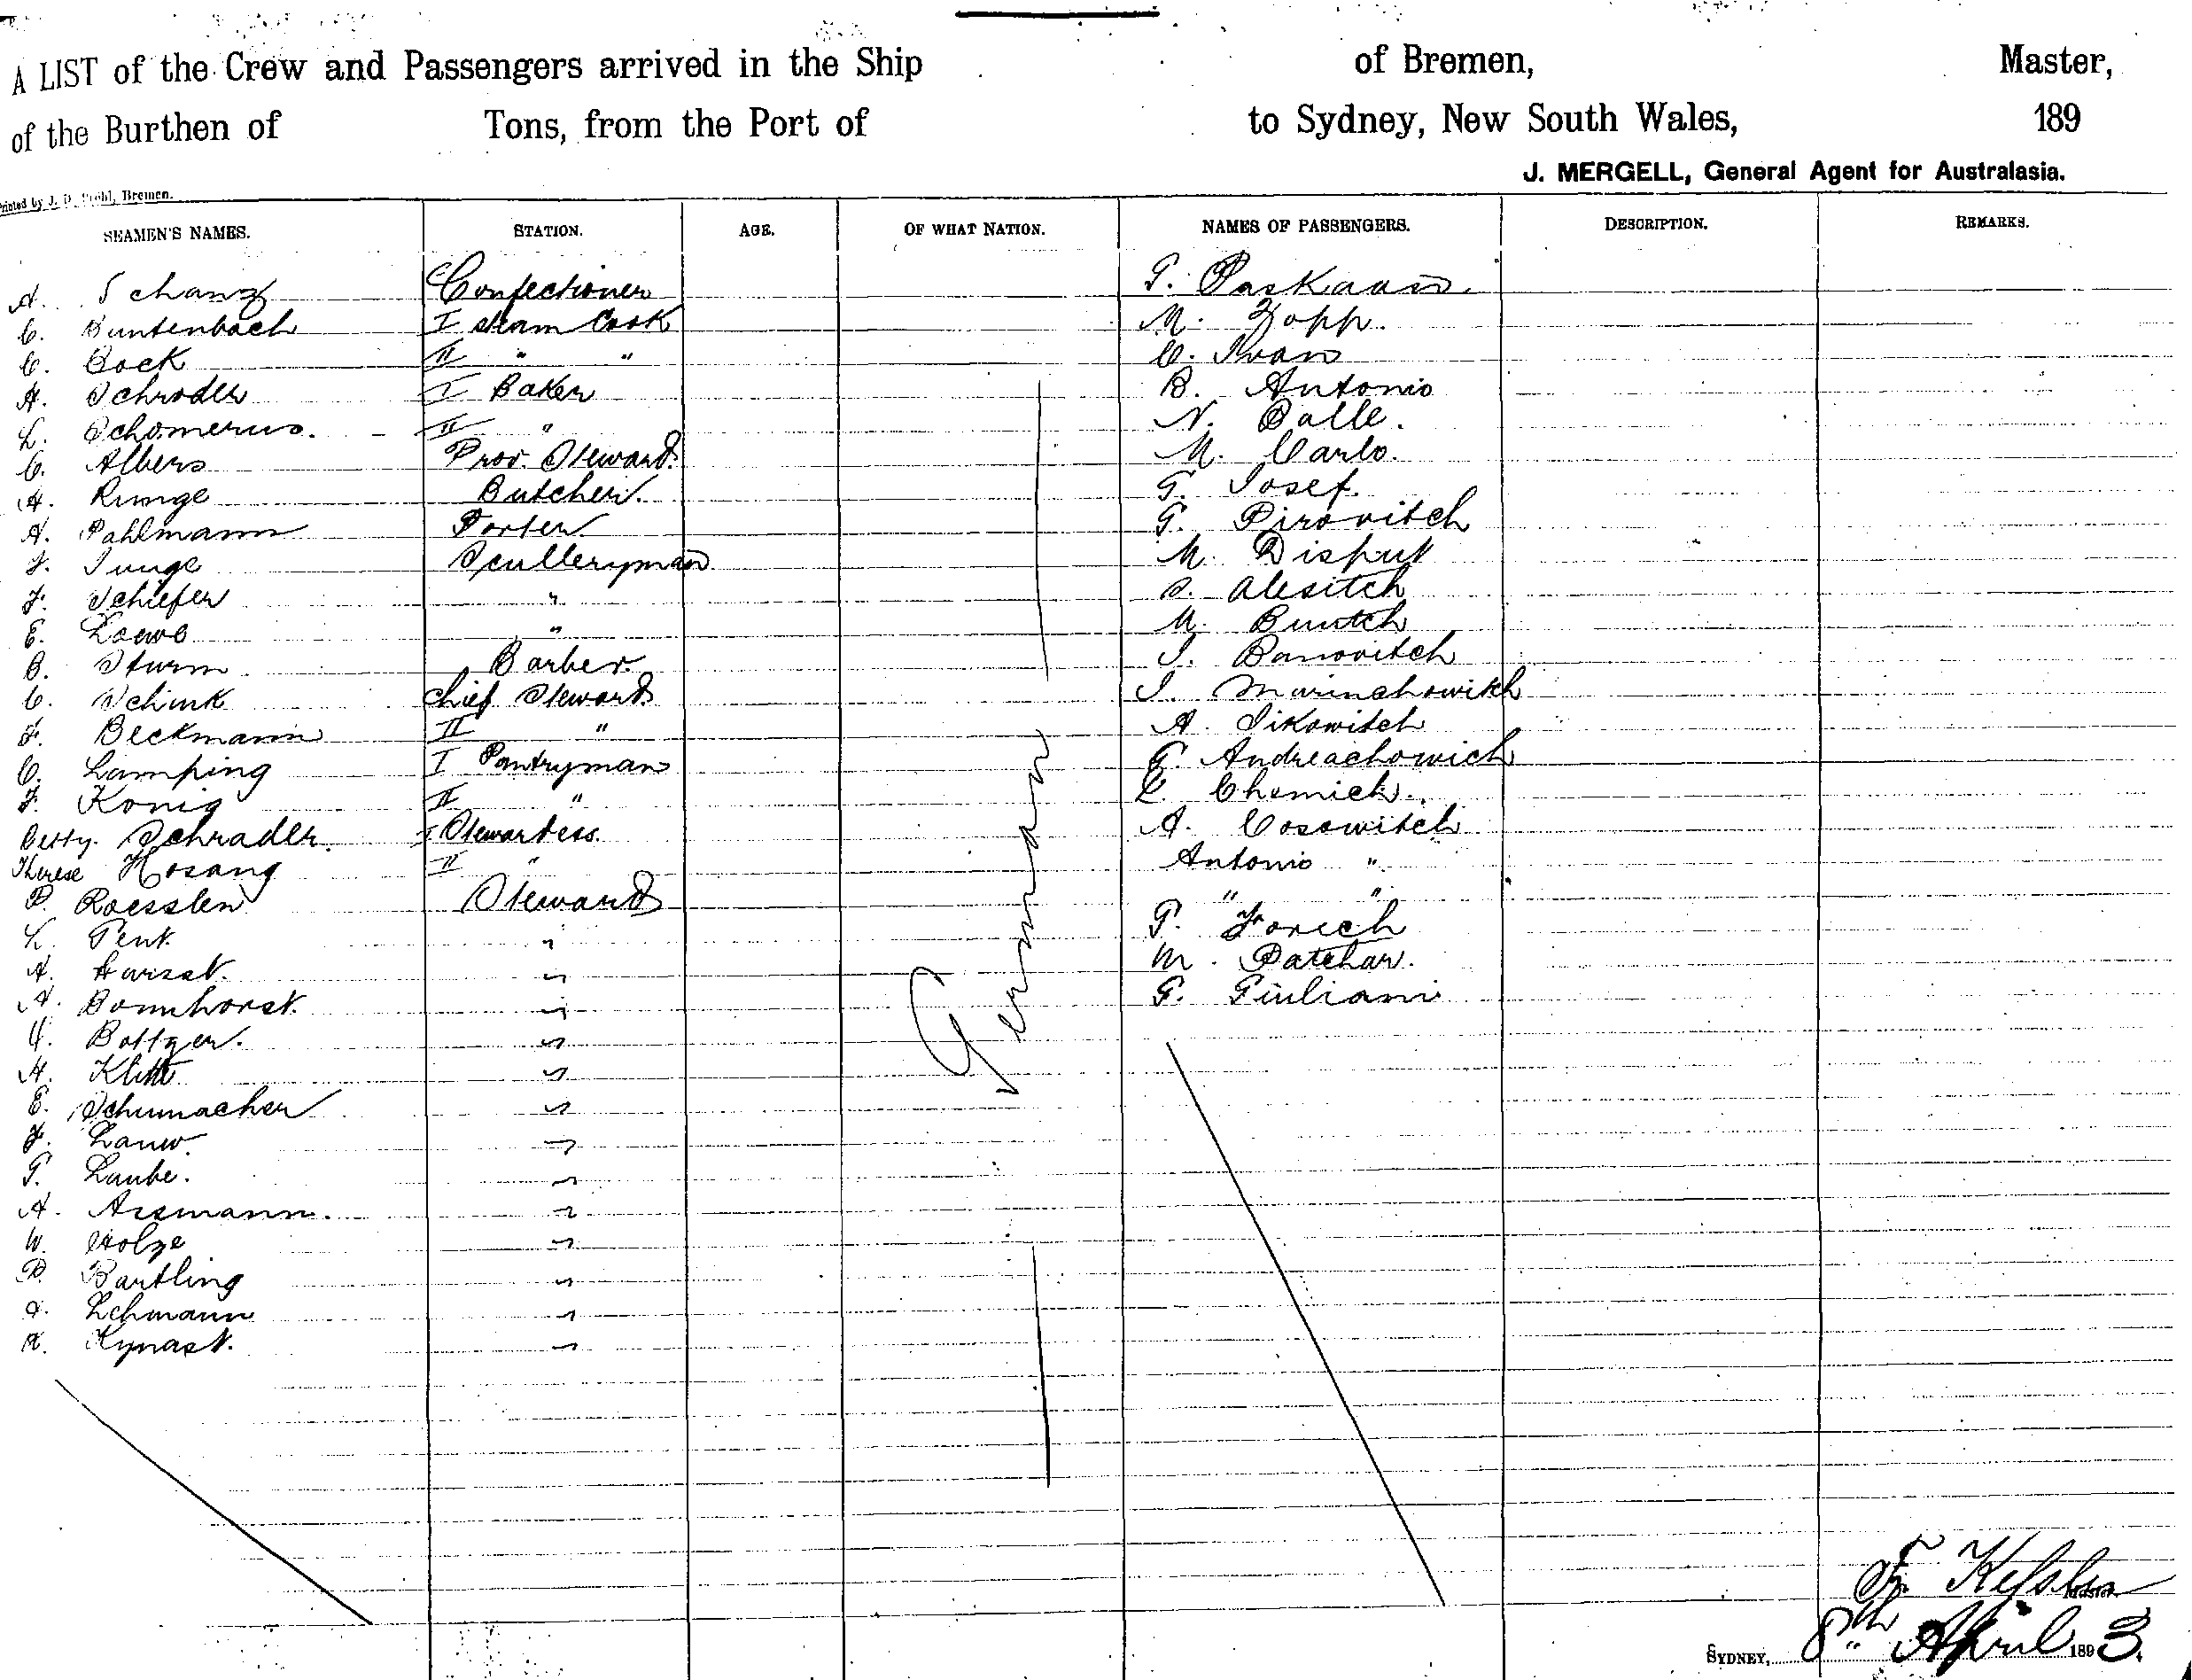 A LIST of the Crew and Passengers arrived in the Ship of Bremen, Master,
of the Burthen of Tons, from the Port of to Sydney, New South Wales, 189
J. MERGELL, General Agent for Australasia.
Printed by J. D. Bremen.
SEAMEN'S NAMES. STATION. AGE. OF WHAT NATION. NAMES OF PASSENGERS. DESCRIPTION. REMARKS.
A. Schanz Confectioner
C. Buntenbach I steam Cook M. Zopp.
C. Bock II " " C. Ivan
A. Schroder I Baker B. Antonio
L. Schomerus. II " N. Balle.
C. Albers Prov. Steward. M. Carlo.
A. Runge Butcher. G. Josef.
A. Pahlmann Porter G. Pirovitch
J. Junge Sculleryman M. Disput
F. Schiefer " S. Alesitch
E. Loewe " M. Buntch
B. Sturm Barber. J. Banovitch
C. Schink Chief Steward J. Marinchowitch
F. Beckmann II " A. Sikowitch
C. Lamping I Pantryman G. Andreachowich
F. König II " L. Chemich.
Betty. Schrader. I Stewardess. A. Cosowitch
Therese Hosang II " Antonio "
P. Roessler Steward " "
L. Pent. " P. Forich
A. " M. Patchar.
A. Bornhorst. " G. Giuliani
Bottger. "
H. "
E. Schumacher "
F. Lauw. "
G. Laube. "
A. Assmann. "
W. Holze "
B. Bartling "
Lehmann "
K. Kynast. "
German
F. Kessler
Master.
SYDNEY, 8th April 1893.